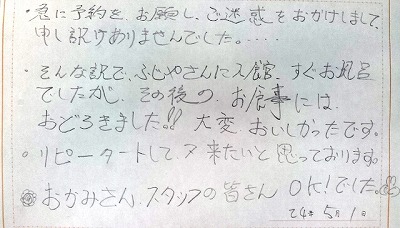 ・急に予約を、お願し、ご迷惑をおかけしまして、
申し訳けありませんでした。....
・そんな訳で、ふじやさんに入館、すぐお風呂
でしたがその後の、お食事には
おどろきました!! 大変おいしかったです。
○リピータートして又来たいと思っております。
おかみさん、スタッフの皆さん OK!でした。
24年5月1日